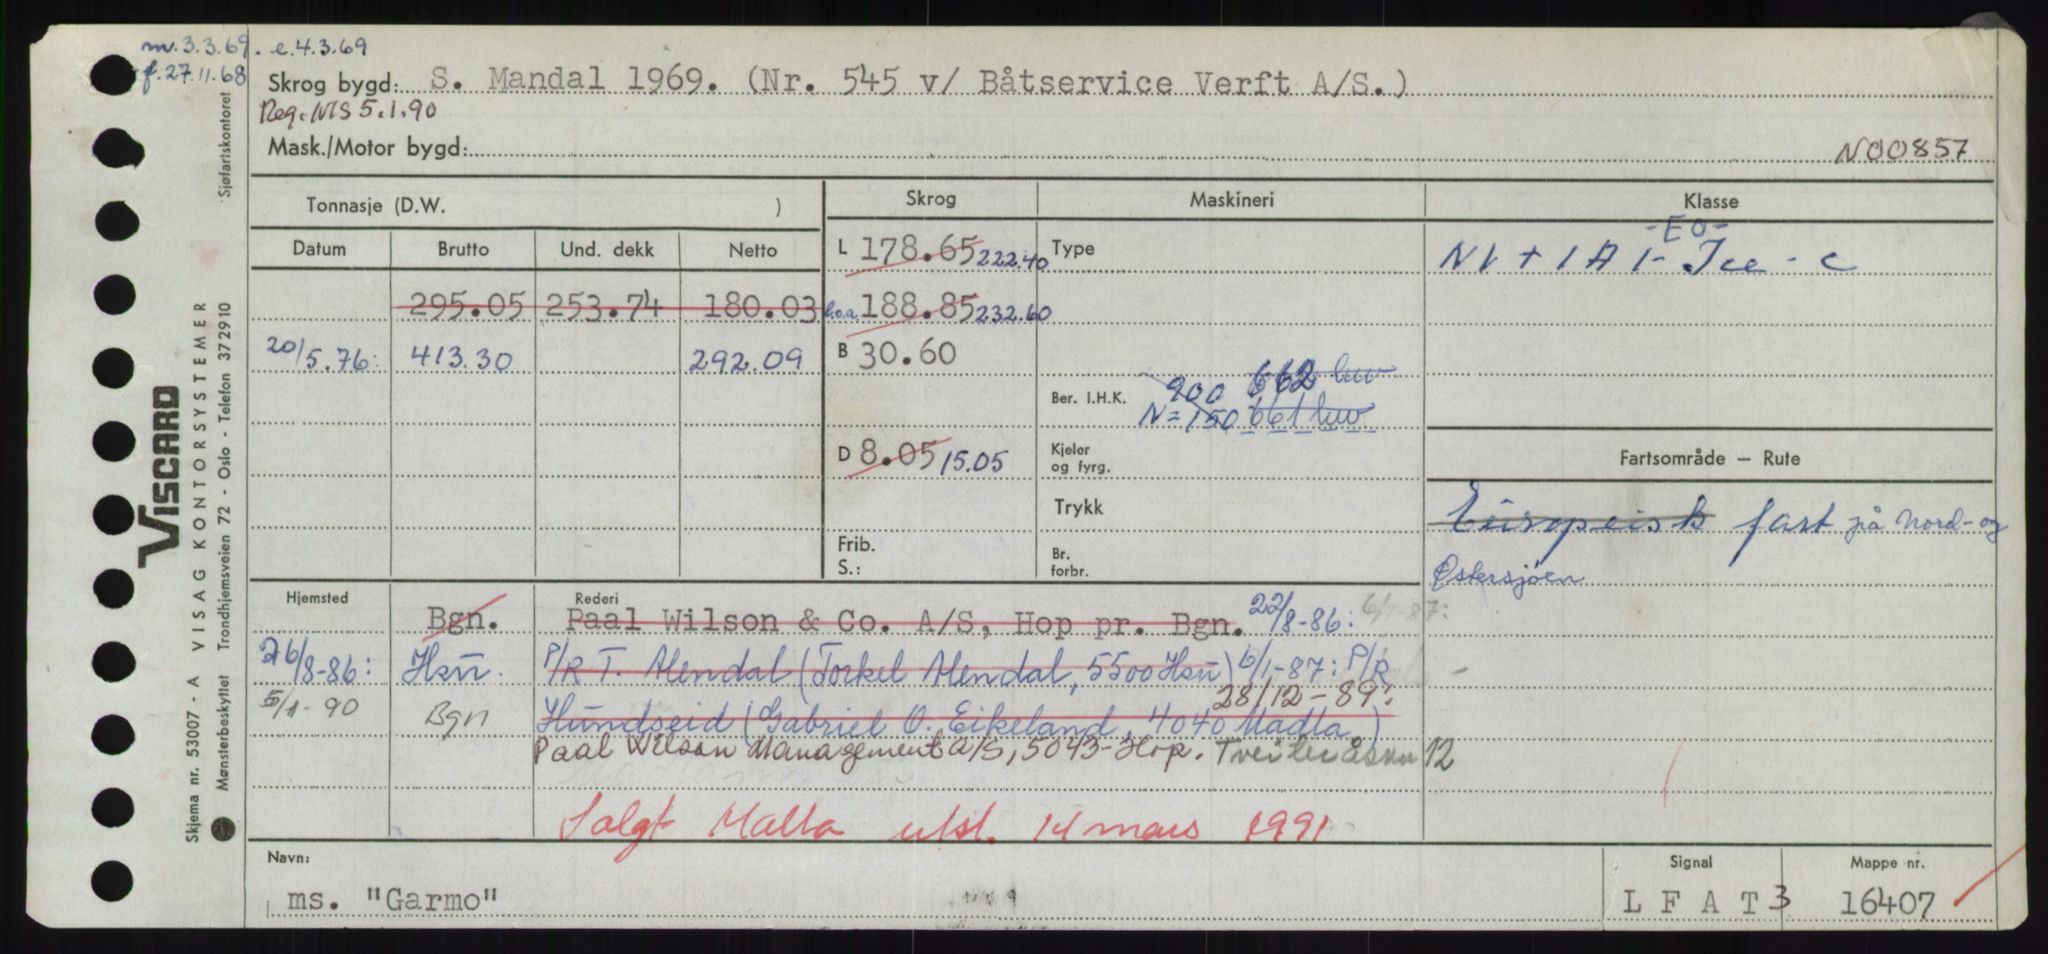 m. 3.3.69. e.4.3.69
f. 27.11.68
Skrog bygd: S. Mandal 1969. (Nr. 545 v/ Båtservice Verft A/S.)
Reg. NIS 5.1.90
Mask./Motor bygd: N00857
Tonnasje (D.W. )
Skrog Maskineri Klasse
Datum Brutto Und. dekk Netto
L 178.65 222.40 Type
-EO-
NV + 1A1- Ice - C
295.05 253.74 180.03 l.o.a. 188.85 232.60
20/5.76: 413.30 292.09 B 30.60
Ber. I.H.K. 900 662 kw
N=150 661 kw
D 8.05 15.05 Kjeler og fyrg.
Fartsområde — Rute
Trykk
Europeisk fart på Nord- og
Østersjøen
Frib. S.: Br. forbr.
Hjemsted Rederi
Bgn. Paal Wilson & Co. A/S, Hop pr. Bgn. 22/8-86: 6/1-87:
26/8-86: Hsu. P/R T. Alendal (Torkel Alendal, 5500 Hsu) 6/1-87: P/R
5/1-90 Bgn Hundseid (Gabriel O. Eikeland, 4040 Madla) 28/12-89:
Paal Wilson Management A/S, 5043-Hop. Tveiteråsvn 12
Solgt Malta utsl. 14 mars 1991
Navn: Signal Mappe nr.
ms. "Garmo" L F A T 3 16407
VISCARD
Skjema nr. 53007 - A VISAG KONTORSYSTEMER
Mønsterbeskyttet Trondhjemsveien 72 - Oslo - Telefon 372910 Sjøfartskontoret